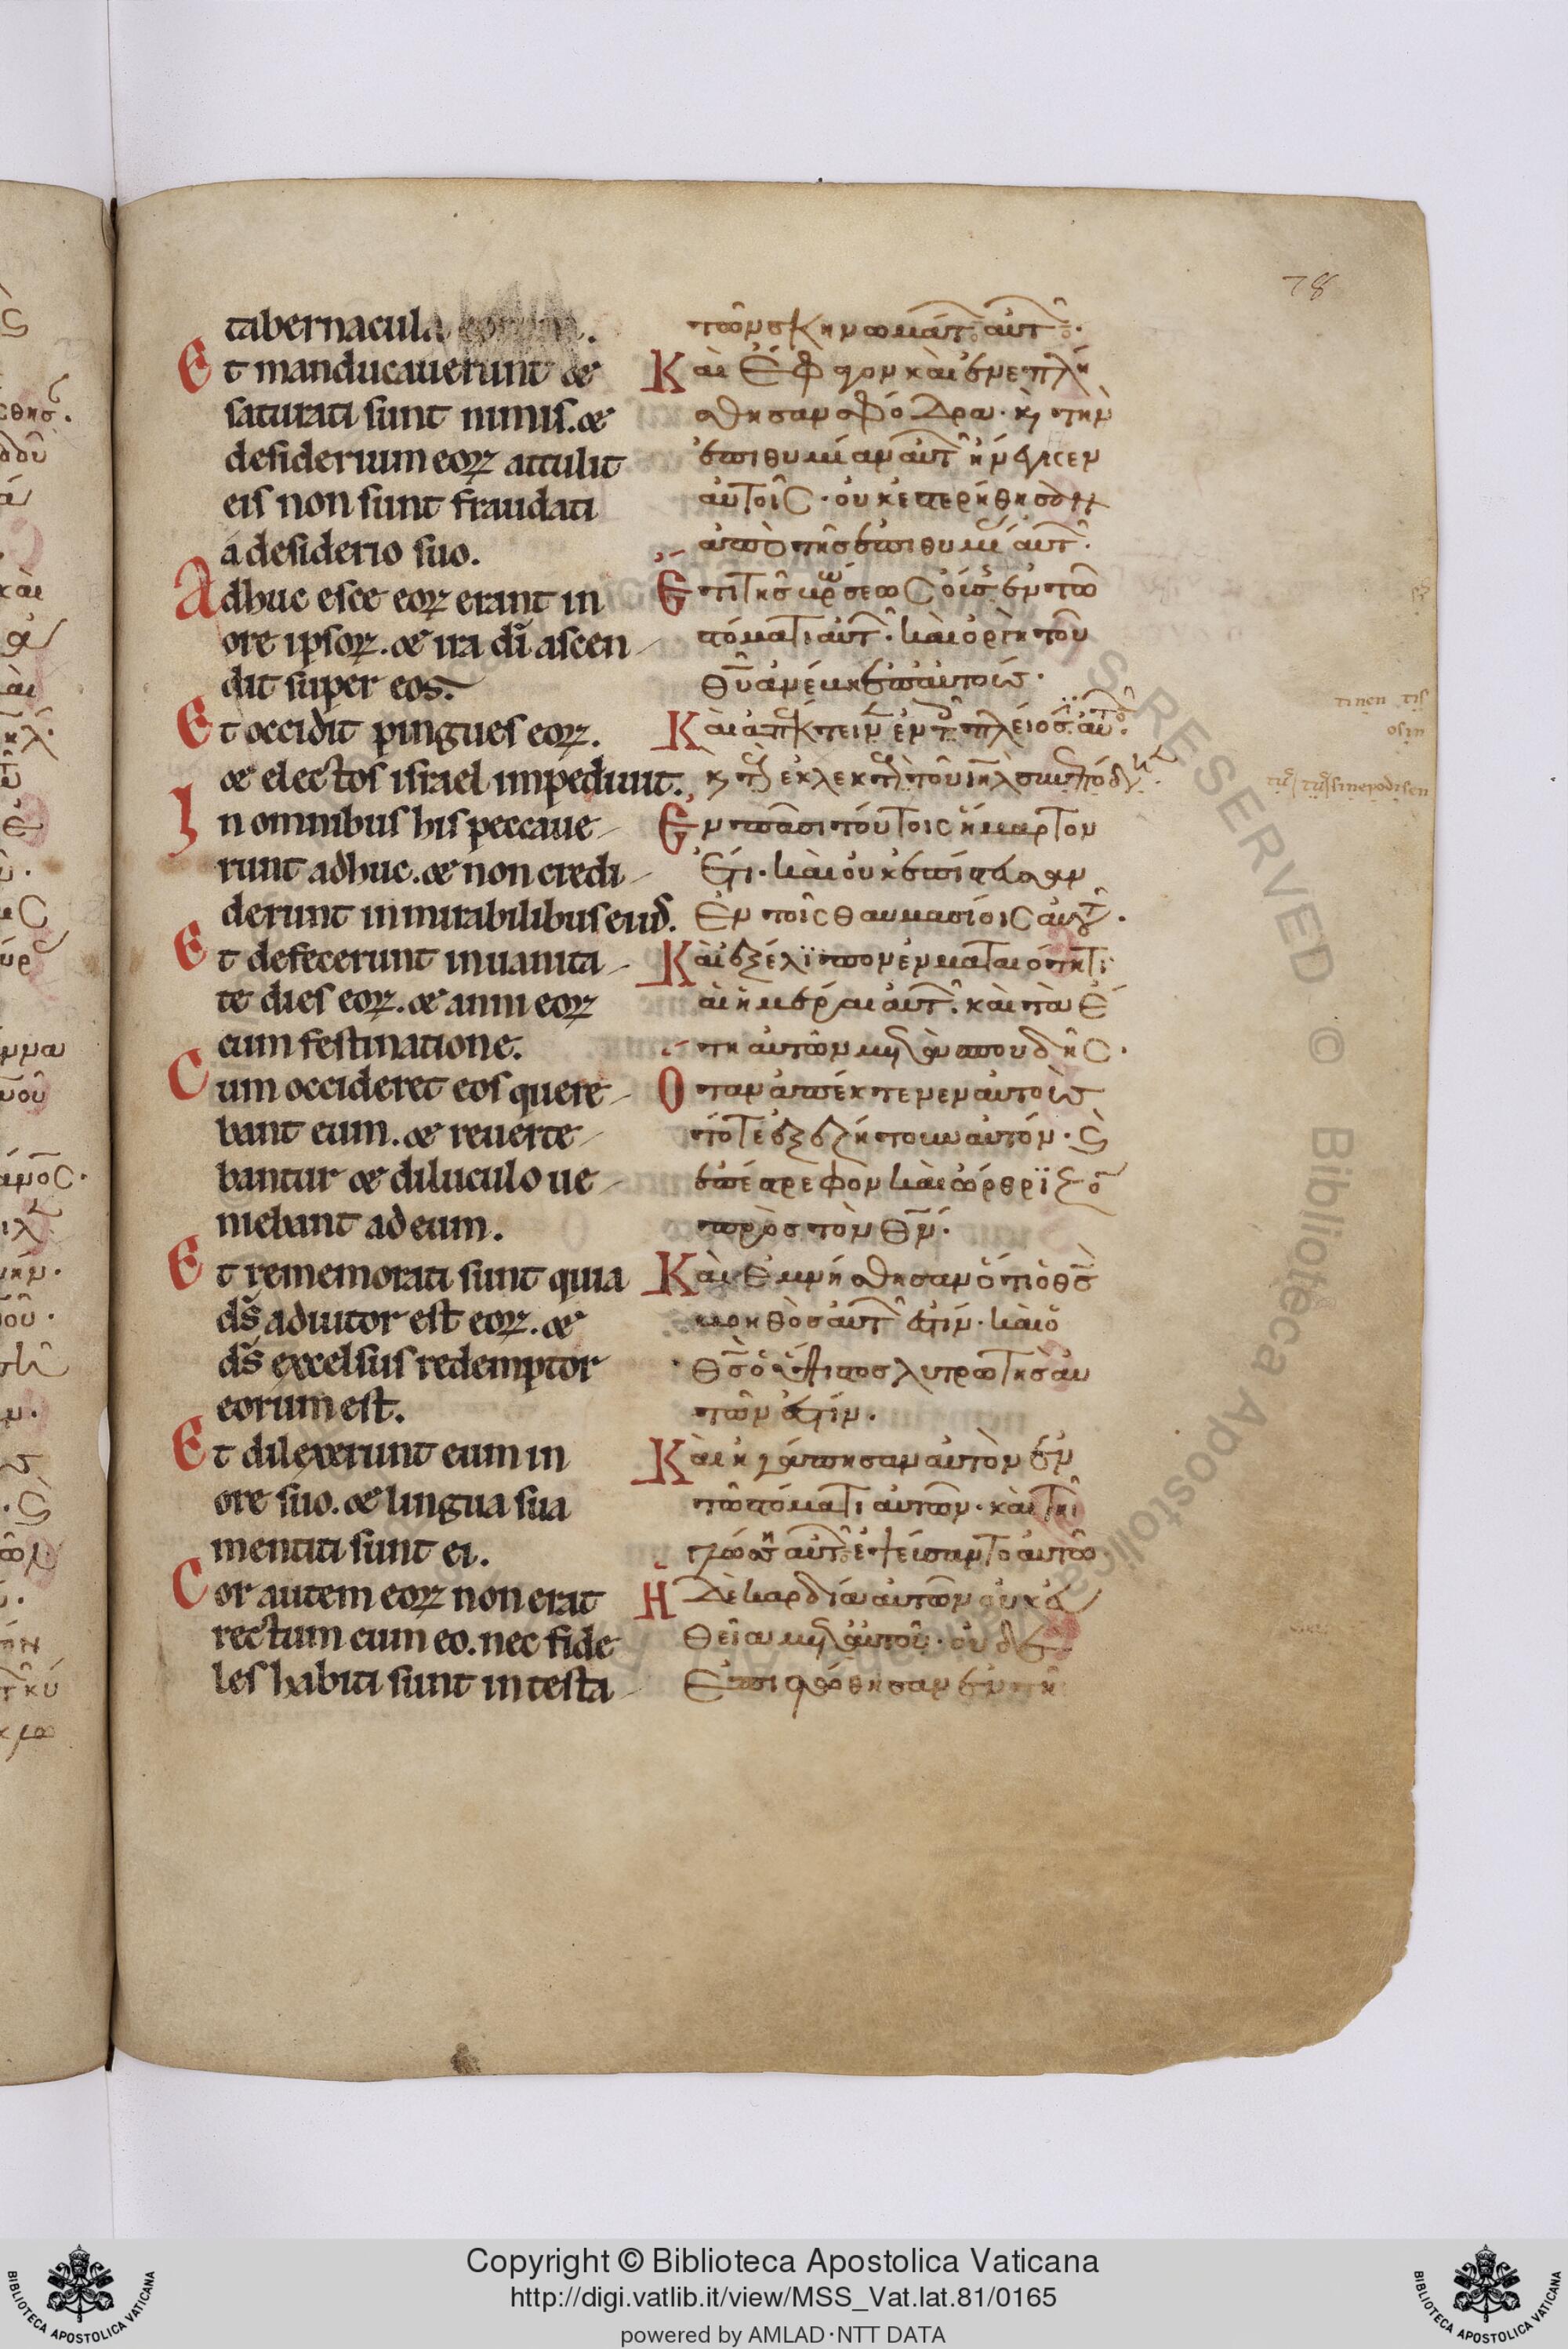 78
tabernacula eorum.
Et manducauerunt &
saturati sunt nimis. &
desiderium eoꝝ attulit
eis non sunt fraudati
a desiderio suo.
Adhuc esce eoꝝ erant in
ore ipsoꝝ. & ira dī ascen-
dit super eos.
Et occidit pingues eoꝝ.
& electos israel impediuit.
In omnibus his peccaue-
runt adhuc. & non credi-
derunt in mirabilibus eius.
Et defecerunt in uanita-
te dies eoꝝ. & anni eoꝝ
cum festinatione.
Cum occideret eos quere-
bant eum. & reuerte-
bantur & diluculo ue-
niebant ad eum.
Et rememorati sunt quia
ds̄ adiutor est eoꝝ. &
ds̄ excelsus redemptor
eorum est.
Et dilexerunt eum in
ore suo. & lingua sua
mentiti sunt ei.
Cor autem eoꝝ non erat
rectum cum eo. nec fide-
les habiti sunt in testa-
τῶν σκηνωμάτ αὐτ.
Καὶ ἔφαγον καὶ ἐνεπλή
σθησαν σφόδρα. κ τὴν
ἐπιθυμίαν αὐτ ἤνεγκεν
αὐτοῖς. οὐκ ἐστερήθησαν
ἀπὸ τῆς ἐπιθυμί αὐτ.
Ἔτι τῆς βρώσεως οὔσης ἐν τῶ
στόματι αὐτ. καὶ ὀργὴ τοῦ
θῦ ἀνέβη ἐπ αὐτούς.
Καὶ ἀπέκτεινεν ἐν τ πλείοσ αὐτ.
κ τοὺς ἐκλεκτοὺς τοῦ ιηλ συνεπόδισεν
Ἐν πᾶσι τούτοις ἥμαρτον
ἔτι. καὶ οὐκ ἐπίστευσαν
ἐν τοῖς θαυμασίοις αὐτ.
Καὶ ἐξέλιπον ἐν ματαιότητι
αἱ ἡμέραι αὐτ. καὶ τὰ ἔ
τη αὐτῶν μετὰ σπουδῆς.
Ὅταν ἀπέκτενεν αὐτοὺς
τότε ἐξεζήτουν αὐτόν. κ
ἐπέστρεφον καὶ ὤρθριζον
πρὸς τὸν θν.
Καὶ ἐμνήσθησαν ὅτι ὁ θς
βοηθὸς αὐτ ἐστίν. καὶ ὁ
θς ὁ ὕψιστος λυτρωτὴς αὐ
τῶν ἐστίν.
Καὶ ἠγάπησαν αὐτὸν ἐν
τῶ στόματι αὐτῶν. καὶ τῆ
γλώσση αὐτ ἐψεύσαντο αὐτῶ
Ἡ δὲ καρδία αὐτῶν οὐκ εὐ
θεῖα μετ αὐτοῦ. οὐδὲ
ἐπιστώθησαν ἐν τῆ
Copyright © Biblioteca Apostolica Vaticana
http://digi.vatlib.it/view/MSS_Vat.lat.81/0165
powered by AMLAD·NTT DATA
BIBLIOTECA APOSTOLICA VATICANA
BIBLIOTECA APOSTOLICA VATICANA